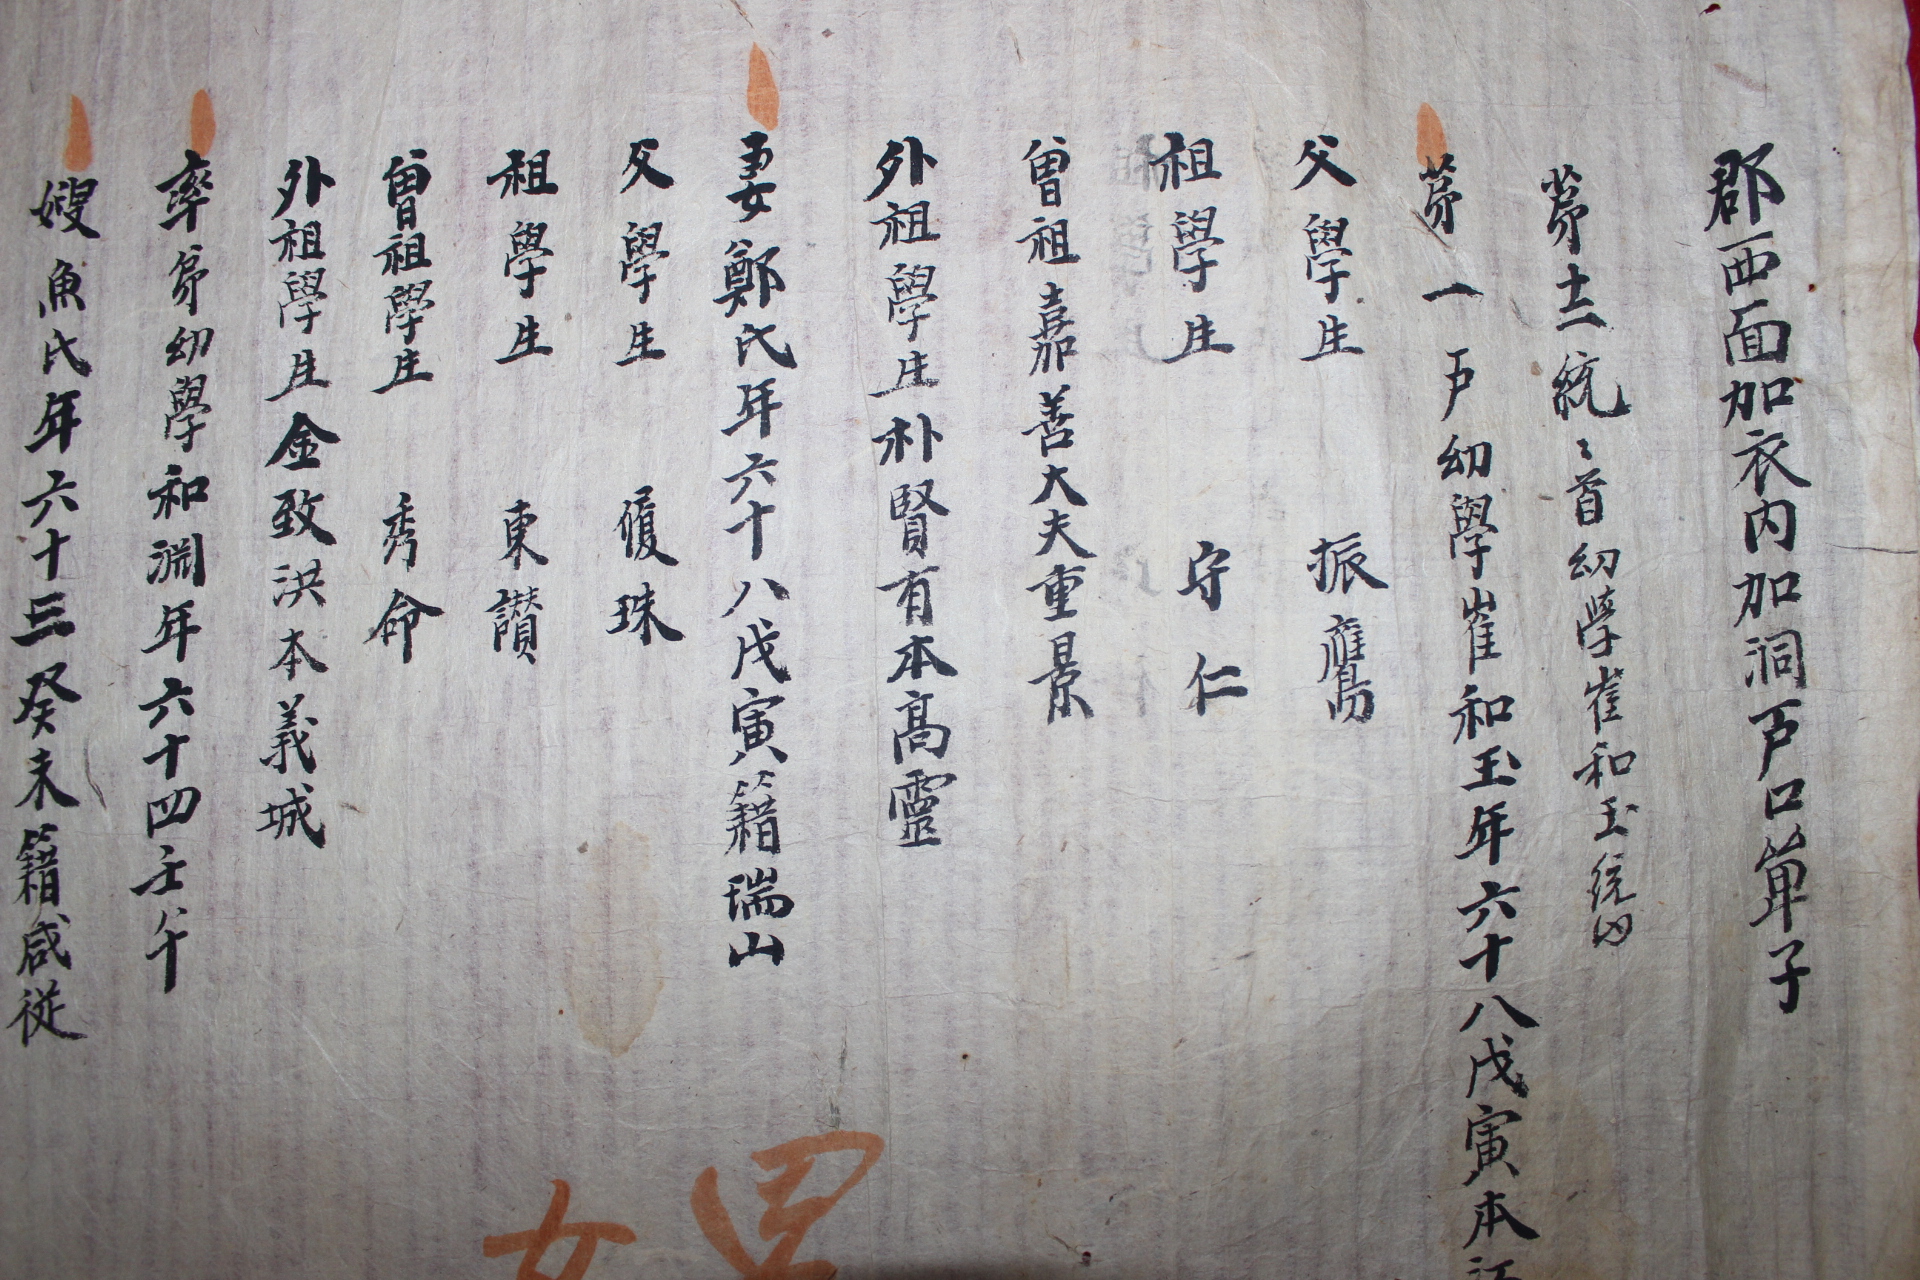 郡西面加衣內加洞戶口單子
苐十二統〻首幼學崔和玉統內
苐一戶幼學崔和玉年六十八戊寅本江
父學生 振鷹
祖學生 守仁
曾祖嘉善大夫重景
外祖學生朴賢有本高靈
妻鄭氏年六十八戊寅籍瑞山
父學生 履珠
祖學生 東讃
曾祖學生 秀命
外祖學生金致洪本義城
率弟幼學和淵年六十四壬午
嫂魚氏年六十三癸未籍咸従
男
女